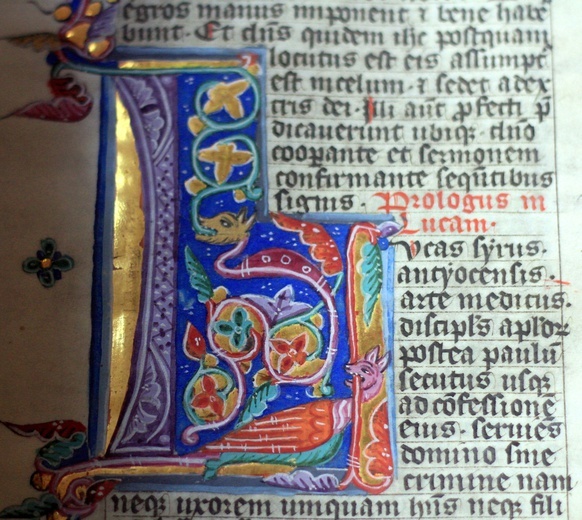 egros manus imponent ⁊ bene habe
bunt· Et dñs quidem ihc postquam
locutus est eis assumpt
est in celum· ⁊ sedet a dex
tris dei· Illi aūt ꝓfecti p̄
dicauerunt ubiqꝫ dño
cooꝑante et sermonem
confirmante sequētibus
signis· Prologus in
Lucam·
Lucas syrus·
antyocensis·
arte medicus·
discipl's apl'oꝝ
postea paulū
secutus usqꝫ
ad cōfessionē
eius· seruiēs
domino sine
crimine nam
neqꝫ uxorem umquam hn̄s neqꝫ fili